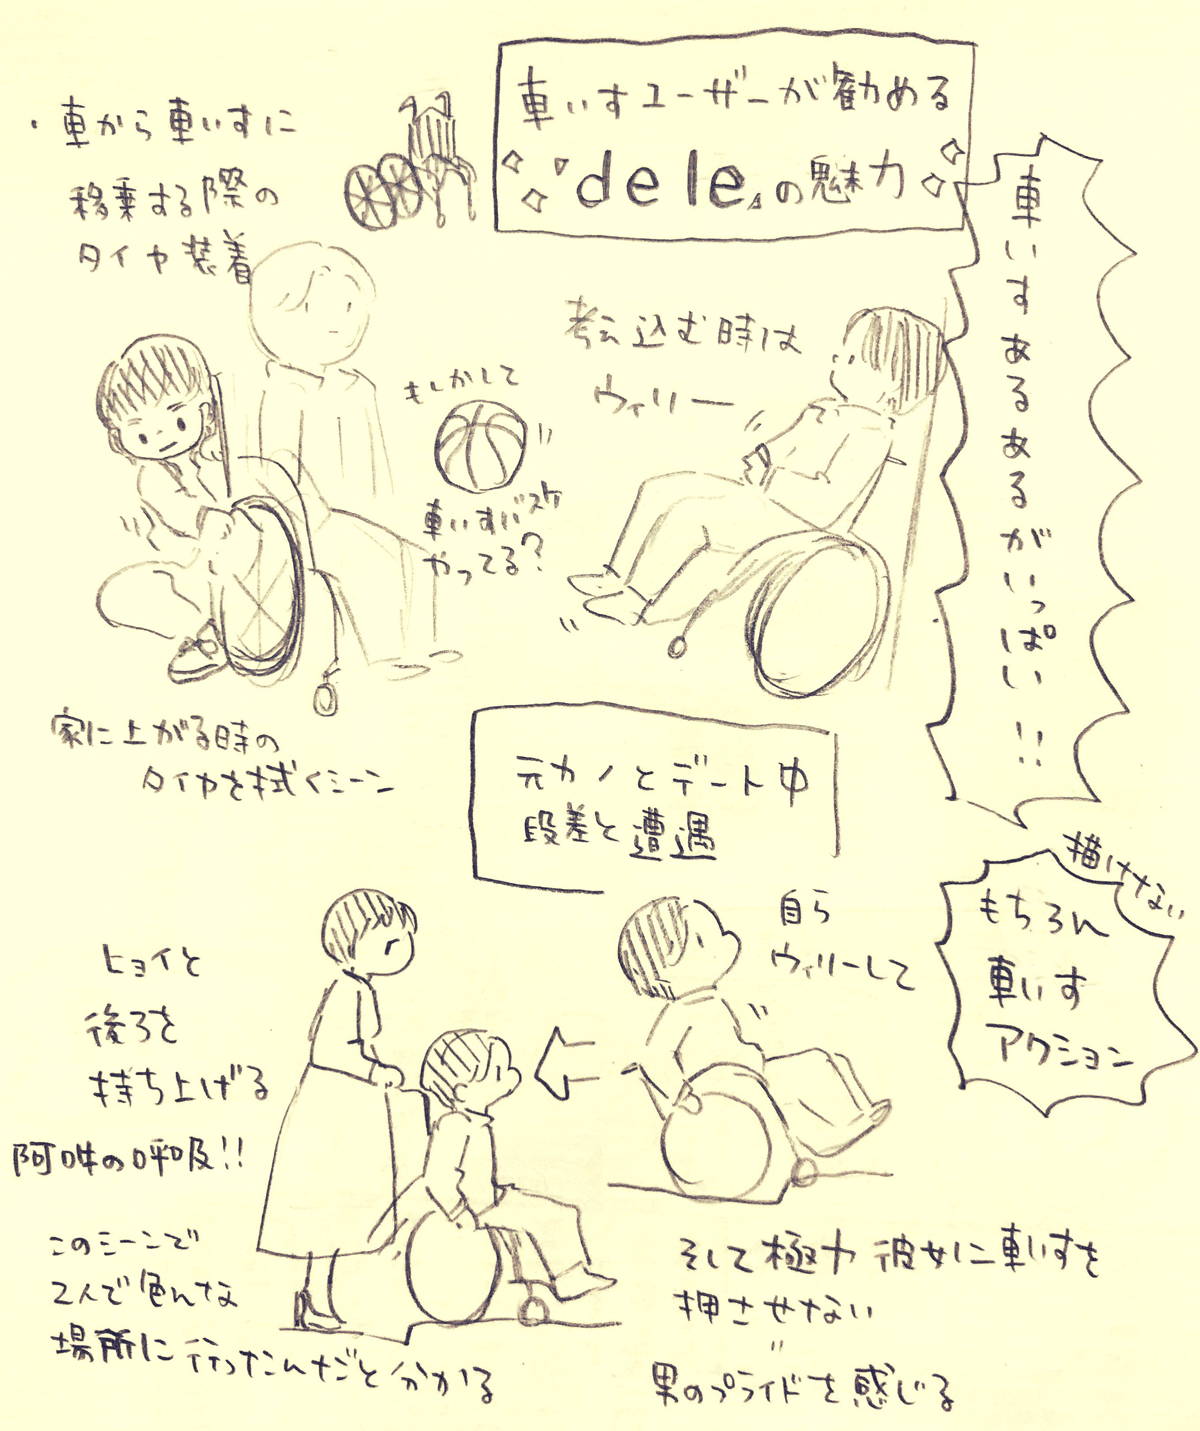 車いすユーザーが勧める
『dele』の魅力
車いすあるあるがいっぱい!!
・車から車いすに
移乗する際の
タイヤ装着
もしかして
車いすバスケ
やってる?
考え込む時は
ウィリー
家に上がる時の
タイヤを拭くシーン
元カノとデート中
段差と遭遇
描けない
もちろん
車いす
アクション
自ら
ウィリーして
ヒョイと
後ろを
持ち上げる
阿吽の呼吸!!
このシーンで
2人で色んな
場所に行ったんだと分かる
そして極力彼女に車いすを
押させない
男のプライドを感じる